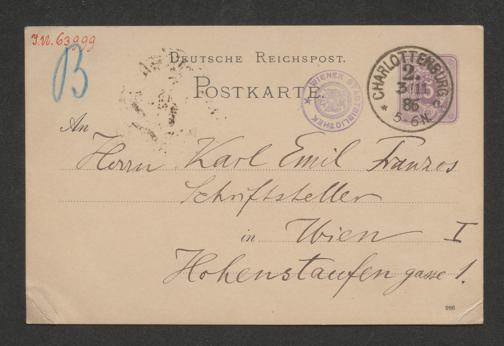 J.N. 63999
B
DEUTSCHE REICHSPOST.
POSTKARTE.
WIENER STADTBIBLIOTHEK
CHARLOTTENBURG
2.
3/11
86
5-6N.
An
Herrn Karl Emil Franzos
Schriftsteller
in Wien I
Hohenstaufengasse 1.
986